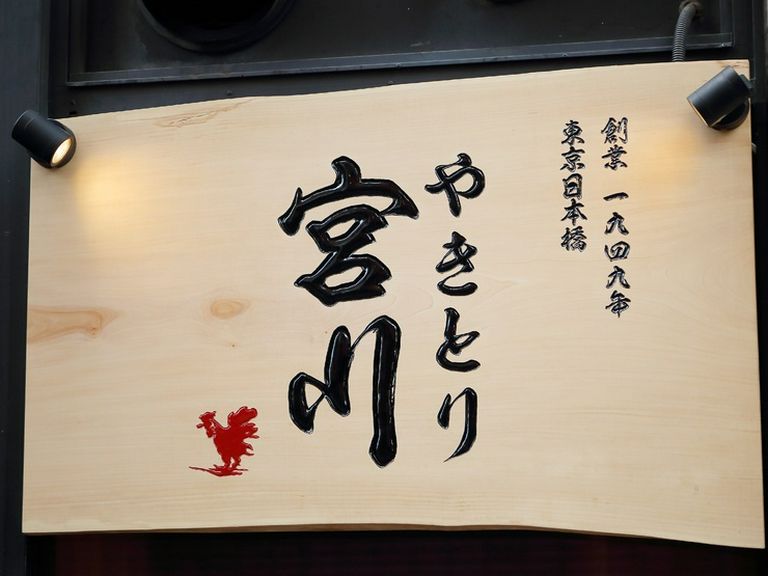 創業 一九四九年
東京日本橋
やきとり
宮川